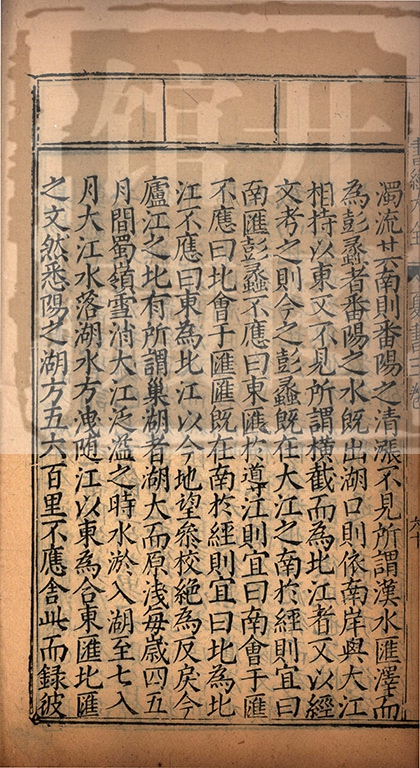 濁流其南則番陽之清漲不見所謂漢水匯澤而
為彭蠡者番陽之水既出湖口則依南岸與大江
相持以東又不見所謂橫截而為北江者又以經
文考之則今之彭蠡既在大江之南於經則宜曰
南匯彭蠡不應曰東匯於導江則宜曰南會于匯
不應曰北會于匯匯既在南於經則宜曰北為北
江不應曰東為北江以今地望參校絕為反戾今
廬江之北有所謂巢湖者湖大而原淺每歲四五
月間蜀嶺雪消大江泛溢之時水淤入湖至七八
月大江水落湖水方洩隨江以東為合東匯北匯
之文然悉陽之湖方五六百里不應舍此而錄彼